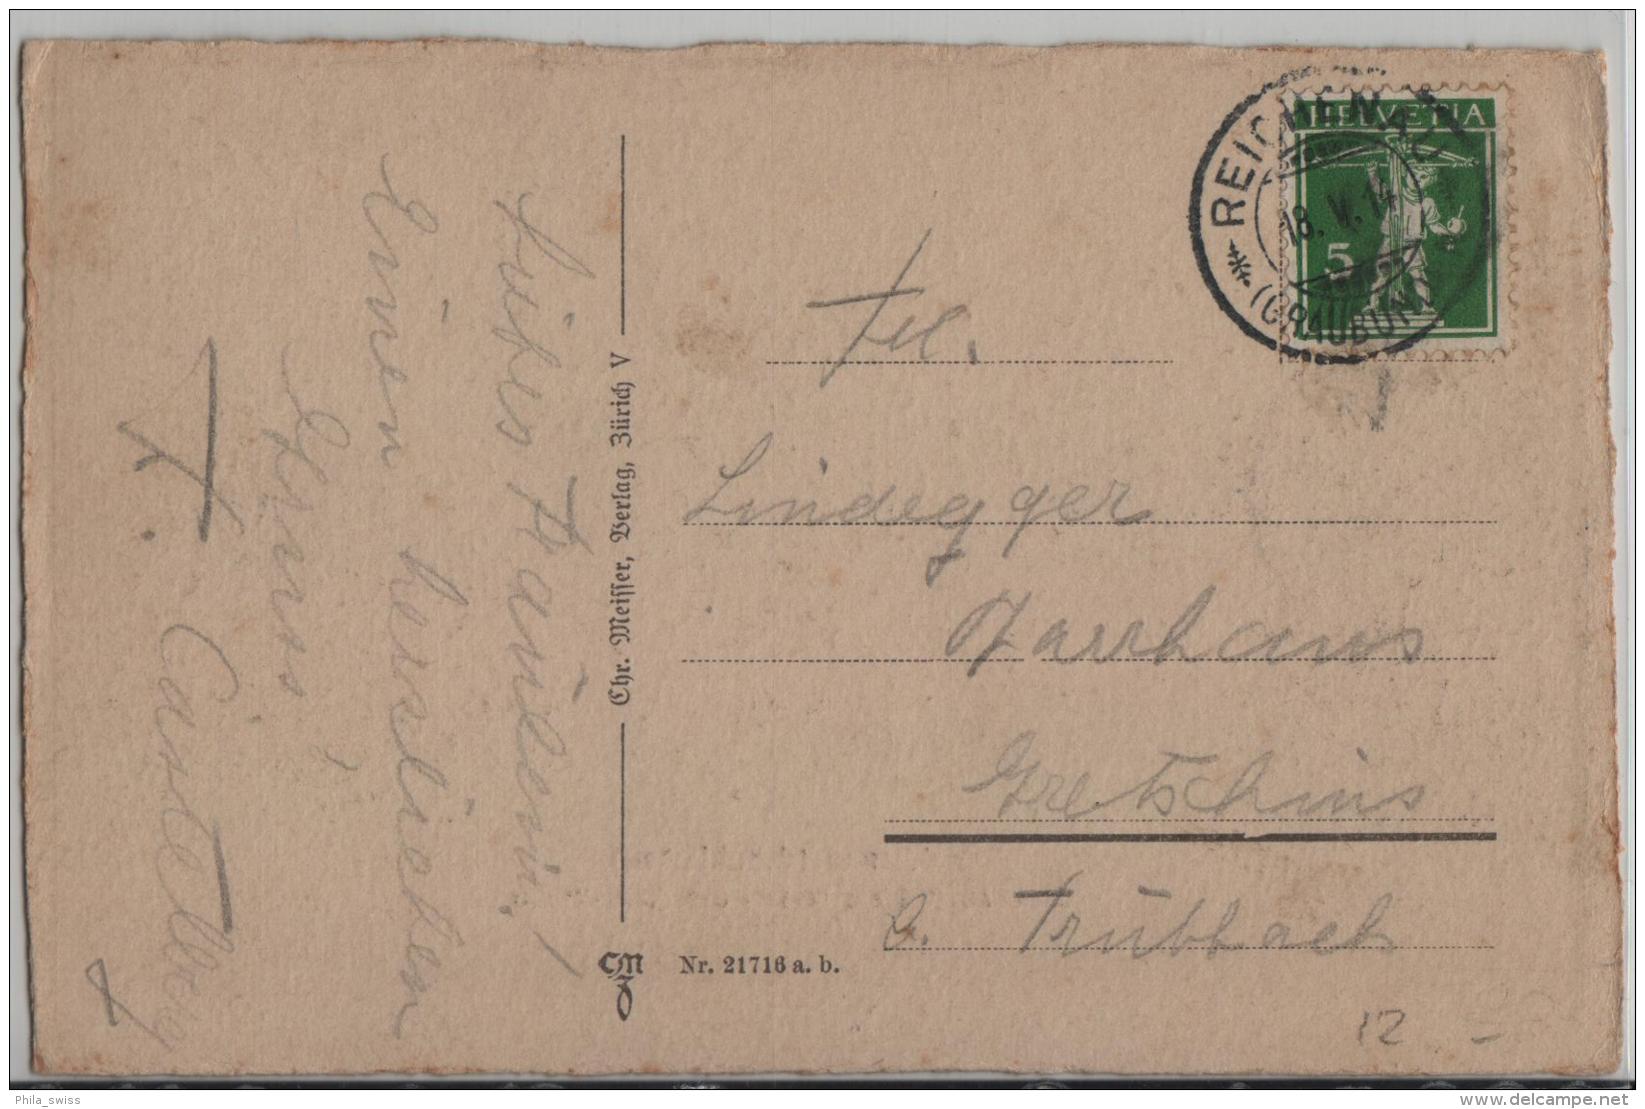 Liebes Fräulein!
Einen herzlichen
Gruss
F. Castelberg
Chr. Meisser, Verlag, Zürich V
CM
Nr. 21716 a. b.
HELVETIA
5
REICHENAU
18. V. 14
(GRAUBÜN
Frl.
Lindegger
Pfarrhaus
Gretschins
b. Trübbach
12 -
Phila_swiss
www.delcampe.net